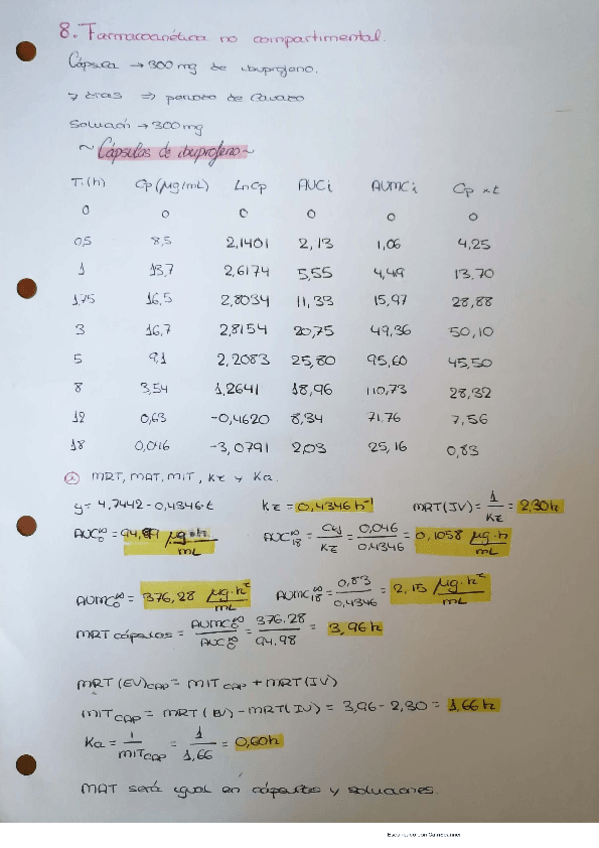 8. Farmacocinética no compartimental.
Cápsula → 300 mg de ibuprofeno.
7 días ⇒ periodo de lavado
Solución → 300 mg
~ Cápsulas de ibuprofeno ~
T.(h) Cp (μg/mL) Ln Cp AUCi AUMCi Cp x t
0 0 0 0 0 0
0,5 8,5 2,1401 2,13 1,06 4,25
1 13,7 2,6174 5,55 4,49 13,70
1,75 16,5 2,8034 11,33 15,97 28,88
3 16,7 2,8154 20,75 49,36 50,10
5 9,1 2,2083 25,80 95,60 45,50
8 3,54 1,2641 18,96 110,73 28,32
12 0,63 -0,4620 8,34 71,76 7,56
18 0,046 -3,0791 2,03 25,16 0,83
a) MRT, MAT, MIT, KE y Ka.
y = 4,7442 - 0,4346·t KE = 0,4346 h⁻¹ MRT(IV) = 1/KE = 2,30 h
AUC₀^∞ = μg·h/mL AUC₁₈^∞ = /KE = 0,046/0,4346 = 0,1058 μg·h/mL
AUMC₀^∞ = 376,28 μg·h²/mL AUMC₁₈^∞ = 0,83/0,4346 = 2,15 μg·h²/mL
MRT cápsulas = AUMC₀^∞/AUC₀^∞ = 376.28/94.98 = 3,96 h
MRT (EV)CAP = MIT CAP + MRT(IV)
MIT CAP = MRT (EV) - MRT(IV) = 3,96 - 2,30 = 1,66 h
Ka = 1/MIT CAP = 1/1,66 = 0,60 h
MAT será igual en cápsulas y soluciones.
Escaneado con CamScanner